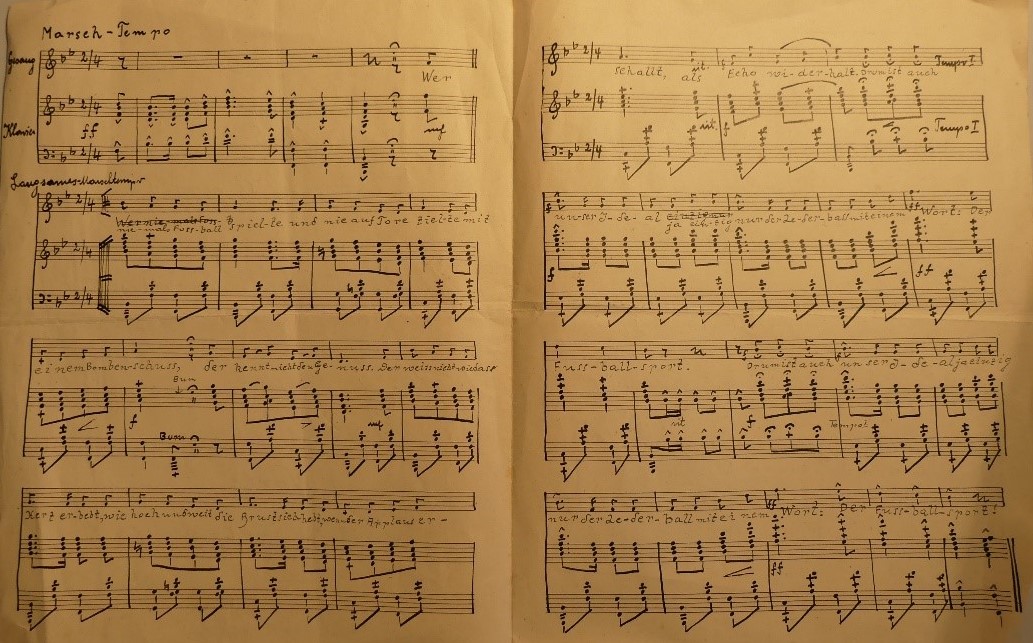 Marsch-Tempo
Gesang
2/4
Wer
Klavier
2/4
ff
mf
2/4
Langsames Marschtempo
2/4
Wer nie-mals Fuss-
nie-mals Fuss-ball spiel-te und nie auf Tore zielte mit
2/4
2/4
einem Bomben-schuss, der kennt nicht den Ge-nuss. Der weiss nicht wie das
Bum
f
mf
Bum
Herz er-bebt, wie hoch und weit die Brust sich hebt, wenn der Applaus er-
2/4
rit.
Tempo I
schallt, als Echo wi-der-hallt. Drum ist auch
2/4
rit. f
Tempo I
2/4
f
ff
unser I-de-al nur der Le-der-ball mit einem Wort: Der
ja ein-zig
f
ff
Fuss-ball-sport. Drum ist auch un ser I-de-al ja einzig
rit
f
Tempo I
ff
nur der Le-der-ball mit ei nem Wort: Der Fuss-ball-sport!
ff